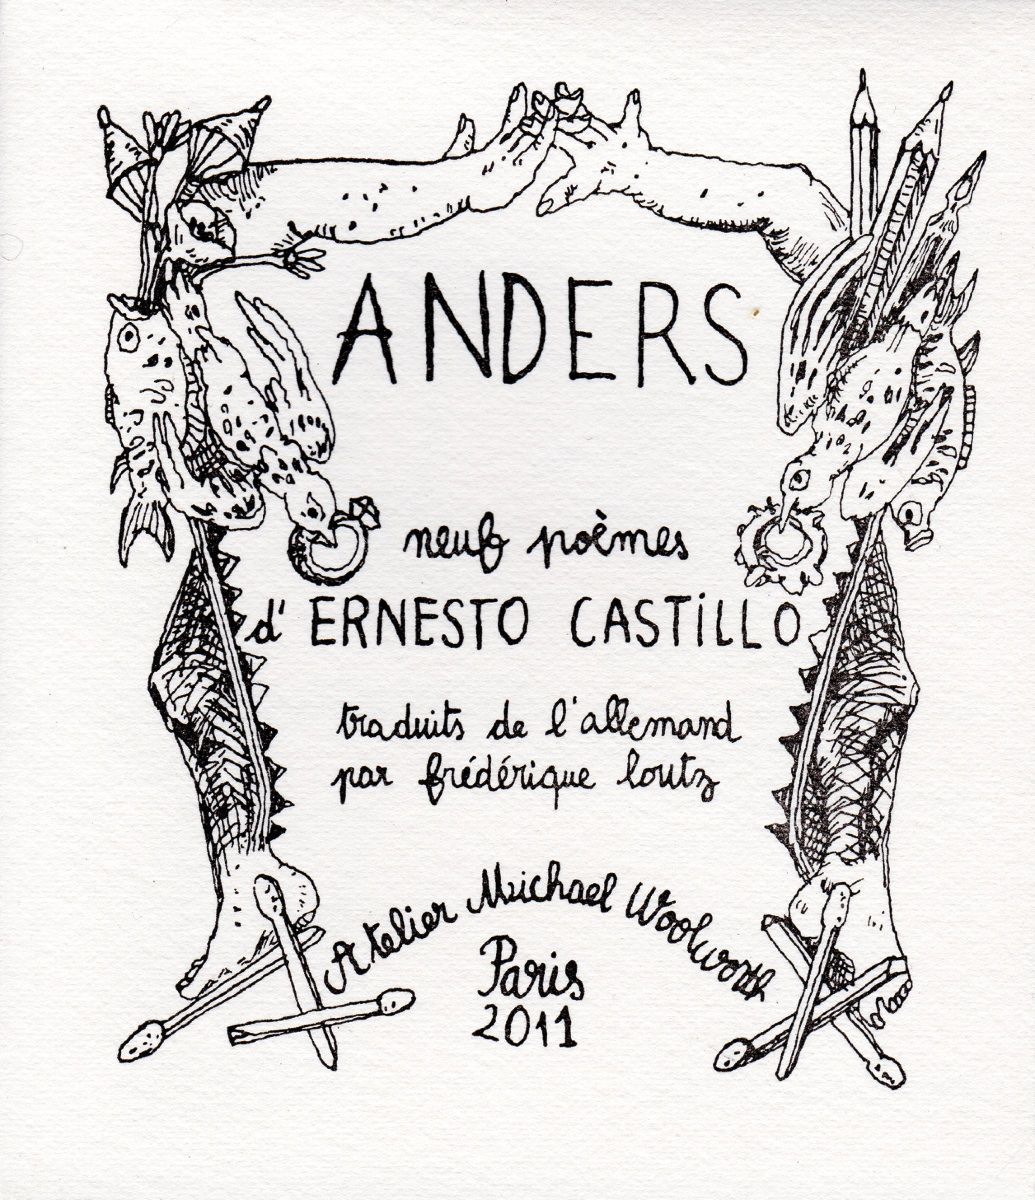 ANDERS
neuf poèmes
d'ERNESTO CASTiLLO
traduits de l'allemand
par frédérique loutz
Atelier Michael Woolworth
Paris
2011